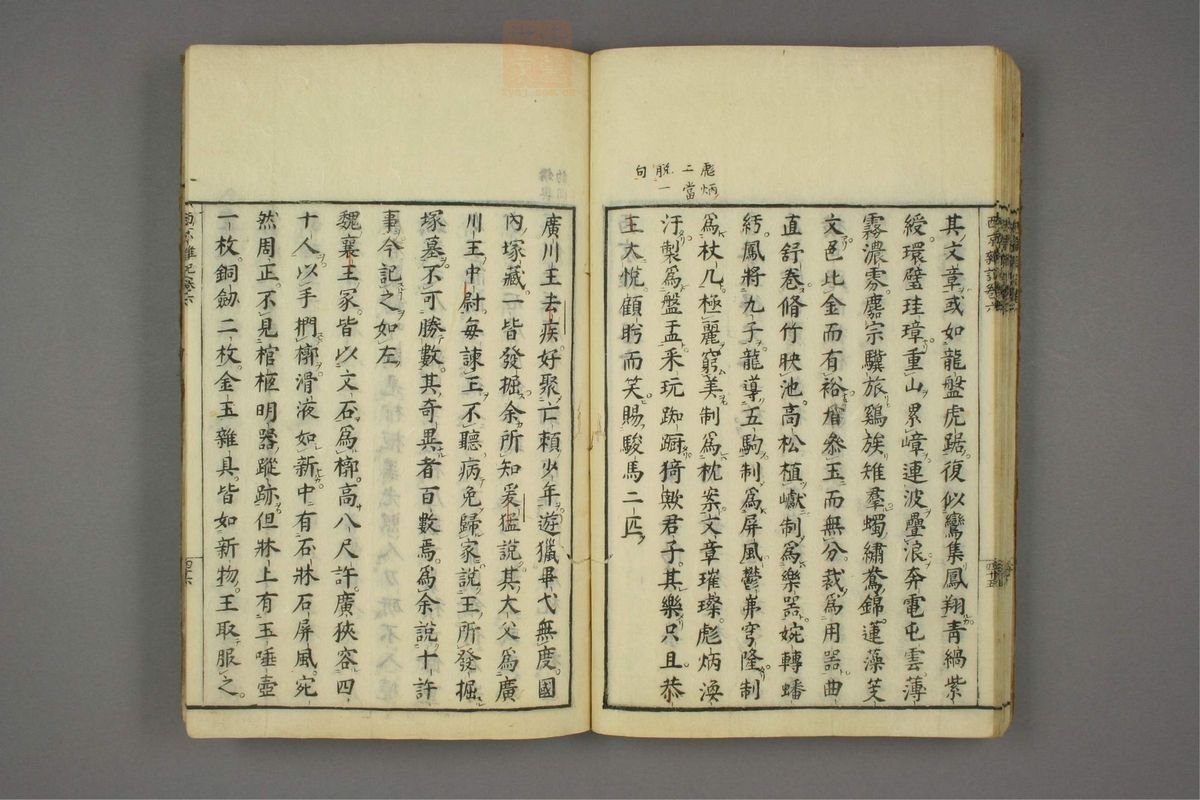 彪炳
二當
脫一
句
其文章或如龍盤虎踞復似鸞集鳳翔青緺紫
綬環璧珪璋重山累嶂連波疊浪奔電屯雲薄
霧濃雰麚宗驥旅鷄族雉羣蠋繡鴦錦蓮藻芰
文色比金而有裕質叅玉而無分裁爲用器曲
直舒卷脩竹映池高松植巘制爲樂器婉轉蟠
紆鳳將九子龍導五駒制爲屏風鬱岪穹隆制
爲杖几極麗窮美制爲枕案文章璀璨彪炳渙
汙製爲盤盂采玩踟蹰猗歟君子其樂只且恭
王大悅顧眄而笑賜駿馬二匹
西京雜記卷六
四十五
廣川王去疾好聚亡頼少年遊獵畢弋無度國
內塚藏一皆發掘余所知爰猛說其大父爲廣
川王中尉每諫王不聽病免歸家說王所發掘
塚墓不可勝數其奇異者百數焉爲余說十許
事今記之如左
魏襄王冢皆以文石爲槨高八尺許廣狹容四
十人以手捫槨滑液如新中有石牀石屏風宛
然周正不見棺柩明器蹤跡但牀上有玉唾壺
一枚銅劒二枚金玉雜具皆如新物王取服之
西京雜記卷六
四十六